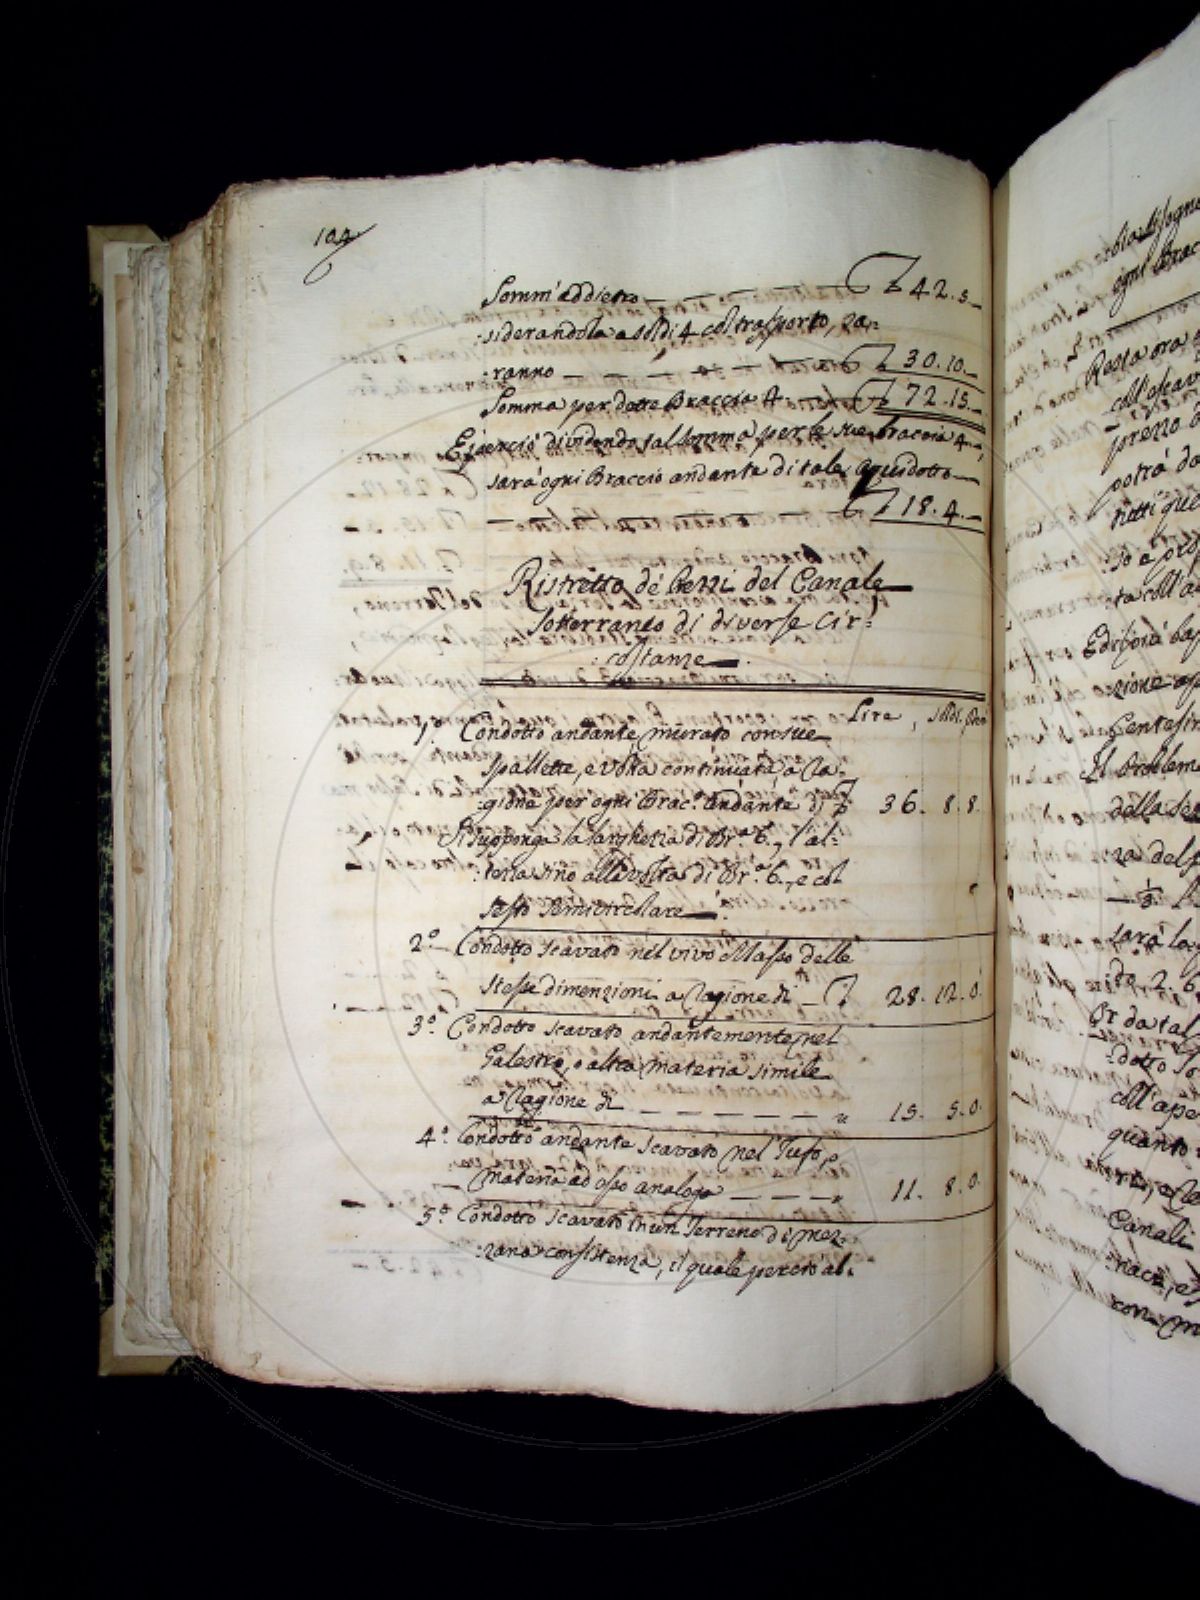 104
Somm' addietro — — — — ₤ 42. 5. —
:siderandola a soldi 4 col trasporto, sa-:
:ranno — — — — — — ₤ 30. 10. —
Somma per dette Braccia 4 — — ₤ 72. 15. —
E perciò dividendo tal somma per le sue braccia 4 —,
sarà ogni Braccio andante di tale Aquidotto —
₤ 18. 4. —
Ristretto de' Prezzi del Canale
Sotterraneo di diverse Cir:
:costanze — .
Lire, soldi, den:
1.° Condotto andante murato con sue
spallette, e volta continuata a ra:
:gione per ogni Brac.° andante di ₤ 36. 8. 8.
Si supponga la larghezza di Br.ª 6., l'al:
:tezza sino alla volta di Br.ª 6., e col
sesto semicircolare — .
2.° Condotto scavato nel vivo Masso delle
stesse dimenzioni a ragione di — ₤ 28. 12. 0.
3.° Condotto scavato andantemente nel
Galestro, o altra materia simile
a ragione di — — — — — " 15. 5. 0.
4.° Condotto andante scavato nel Tufo, o
materia ad esso analoga — — — " 11. 8. 0.
5.° Condotto scavato in un Terreno di mez:
:zana consistenza, il quale perciò ab:
bisogno
ogni Brac
Resta ora
coll'escav
prezzo
potrà da
tutti que
so a prop
ta coll'a
zione
Centesim
Il Problema
della
za del
— 1/3
sarà la
do 2. 6
Br da tal
:dotto So
coll'ape
quanto
Canali
con m